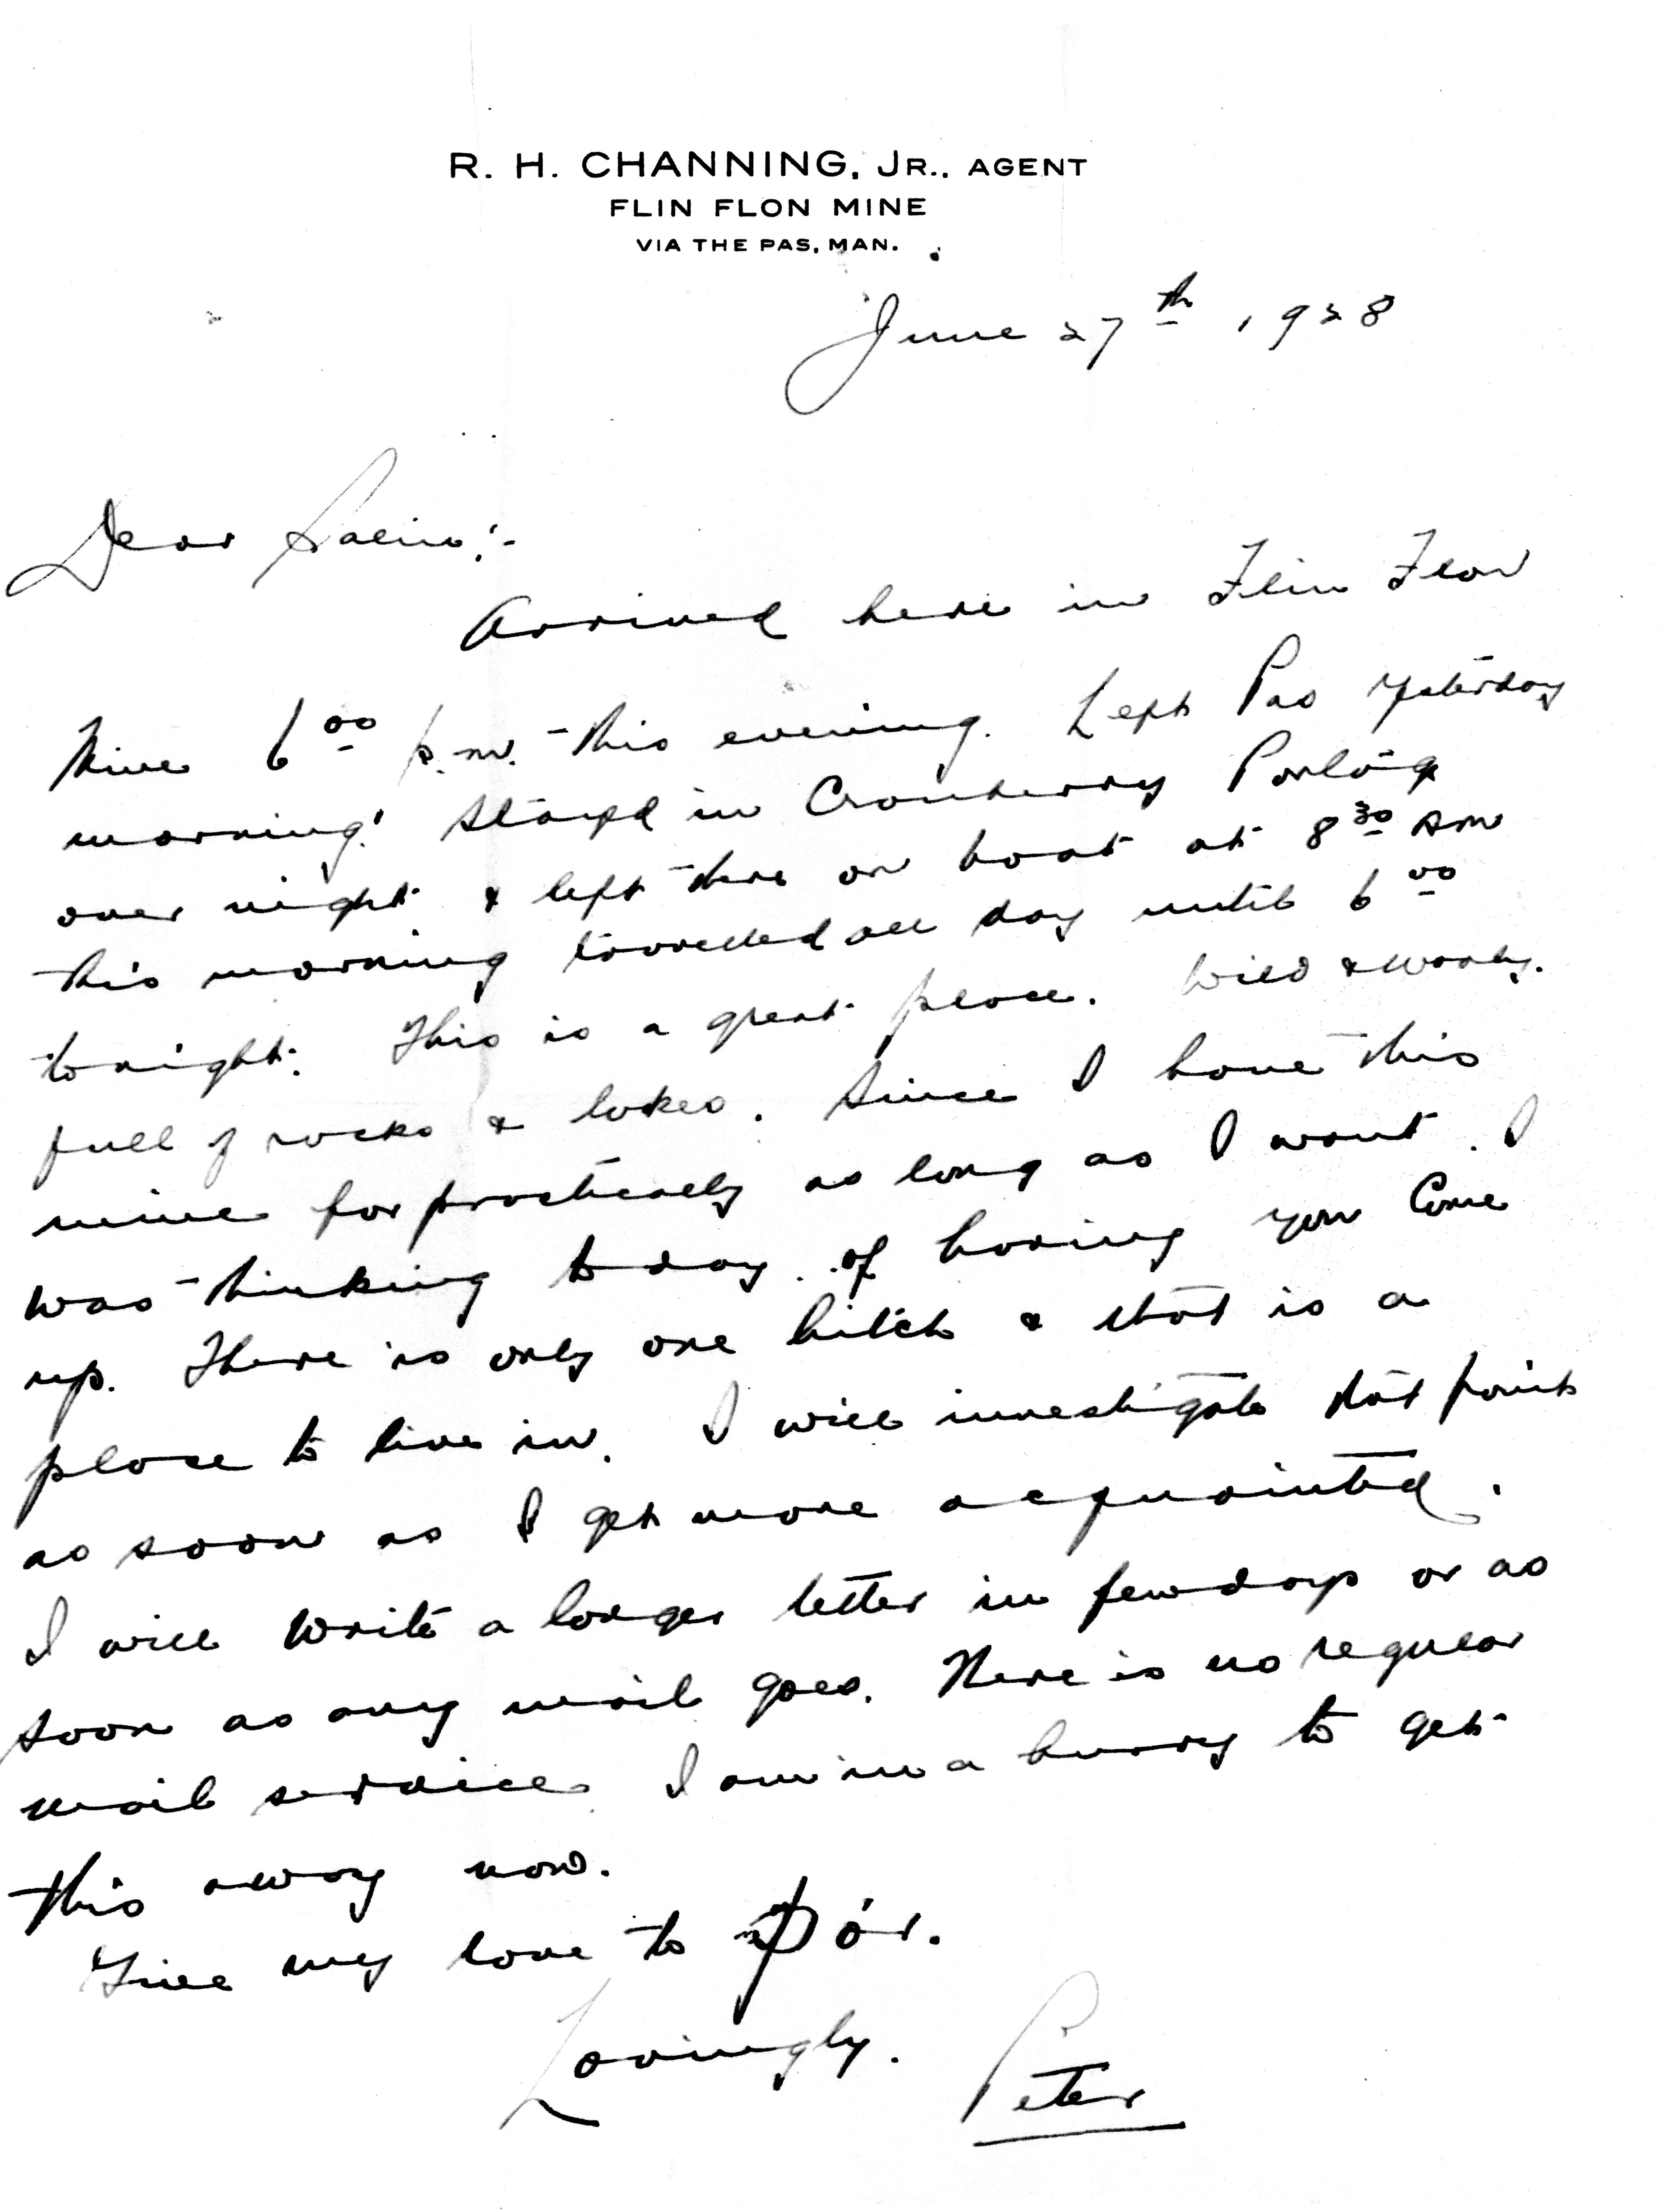 R. H. CHANNING, JR., AGENT
FLIN FLON MINE
VIA THE PAS, MAN.
June 27th, 1928
Dear
Arrived here in Flin Flon
Mine 6 00 p.m. this evening. Left Pas yesterday
morning. Stayed in Cranberry Portage
over night & left there on boat at 8 30 AM
this morning travelled all day until 6 00
tonight. This is a great place. Wild & wooly.
full of rocks & lakes. Since I have this
mine for practically as long as I want. I
was thinking today of having you come
up. There is only one hitch & that is a
place to live in. I will investigate that point
as soon as I get more acquainted.
I will write a longer letter in few days or as
soon as any mail goes. There is no regular
mail service. I am in a hurry to get
this away now.
Give my love to Þór.
Lovingly.
Peter